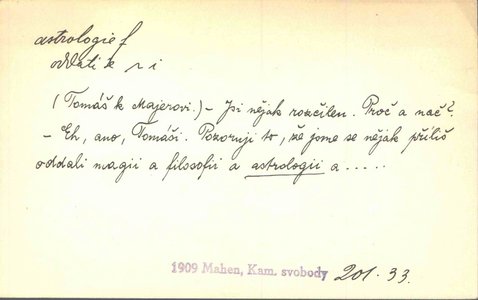 astrologie f
oddati se r i
(Tomáš k Majerovi.) – Jsi nějak rozčilen. Proč a nač?
– Eh, ano, Tomáši. Pozoruji to, že jsme se nějak příliš
oddali magii a filosofii a astrologii a .....
1909 Mahen, Kam. svobody 201. 33.